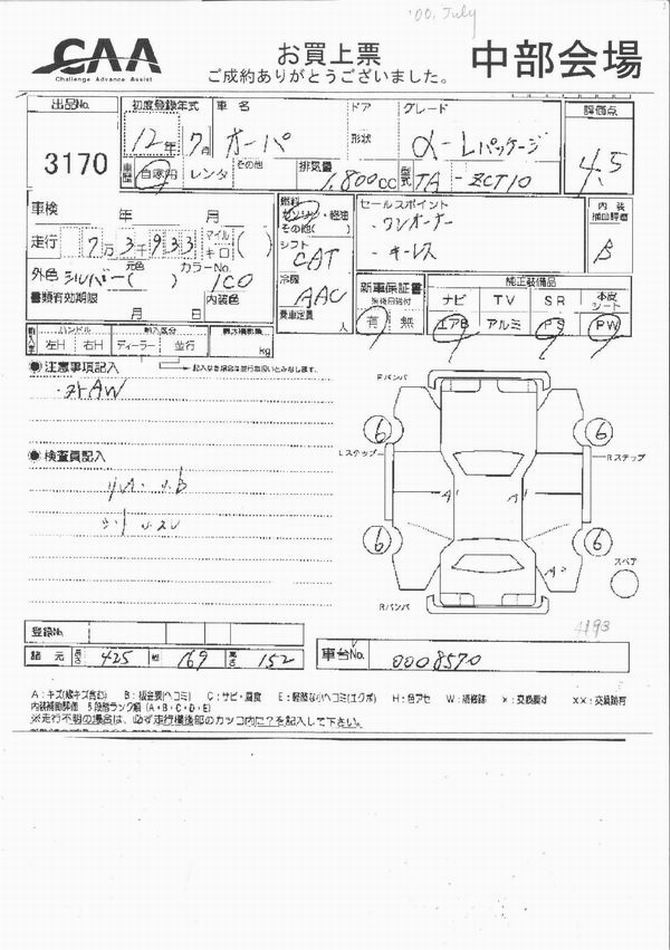 '00. July
CAA
Challenge Advance Assist
お買上票
ご成約ありがとうございました。
中部会場
出品No.
3170
初度登録年式
12年 7月
車名
オーパ
ドア
形状
グレード
α-Lパッケージ
評価点
4.5
車歴
自家用 レンタ その他
排気量
1,800cc
型式
TA-ZCT10
車検 年 月
走行 7万3千933 マイル キロ ( )
外色 シルバー 元色 ( ) カラーNo. 1C0
書類有効期限 月 日
内装色
燃料
ガソリン・軽油
その他( )
シフト
CAT
冷房
AAC
乗車定員 人
セールスポイント
・ワンオーナー
・キーレス
内装
補助評価
B
新車保証書
有 無
純正装備品
ナビ TV SR 本皮シート
エアB アルミ PS PW
輸入車
ハンドル
左H 右H
輸入区分
ディーラー 並行
最大積載量
kg
●注意事項記入
記入なき場合は並行取扱いとみなします。
●検査員記入
Fバンパ
Lステップ
Rステップ
6 6
A' A'
6 6
A'
スペア
Rバンパ
4193
登録No.
諸元 長さ 425 幅 169 高さ 152
車台No. 0008570
A:キズ(線キズ含む) B:板金要(ヘコミ) C:サビ・腐食 E:軽微な小ヘコミ(エクボ) H:色アセ W:補修跡 ×:交換要す ××:交換跡有
内装補助評価 5段階ランク順(A・B・C・D・E)
※走行不明の場合は、必ず走行欄後部のカッコ内に?を記入して下さい。